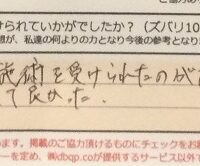 けられていかがでしたか？（ズバリ10
想が、私達の何よりの力となり今後の参考となり
施術を受けられたのが
て良かった.
ります。掲載のご協力頂けるものにチェックをお
ーを定め、㈱dbqp.coが提供するサービス以外